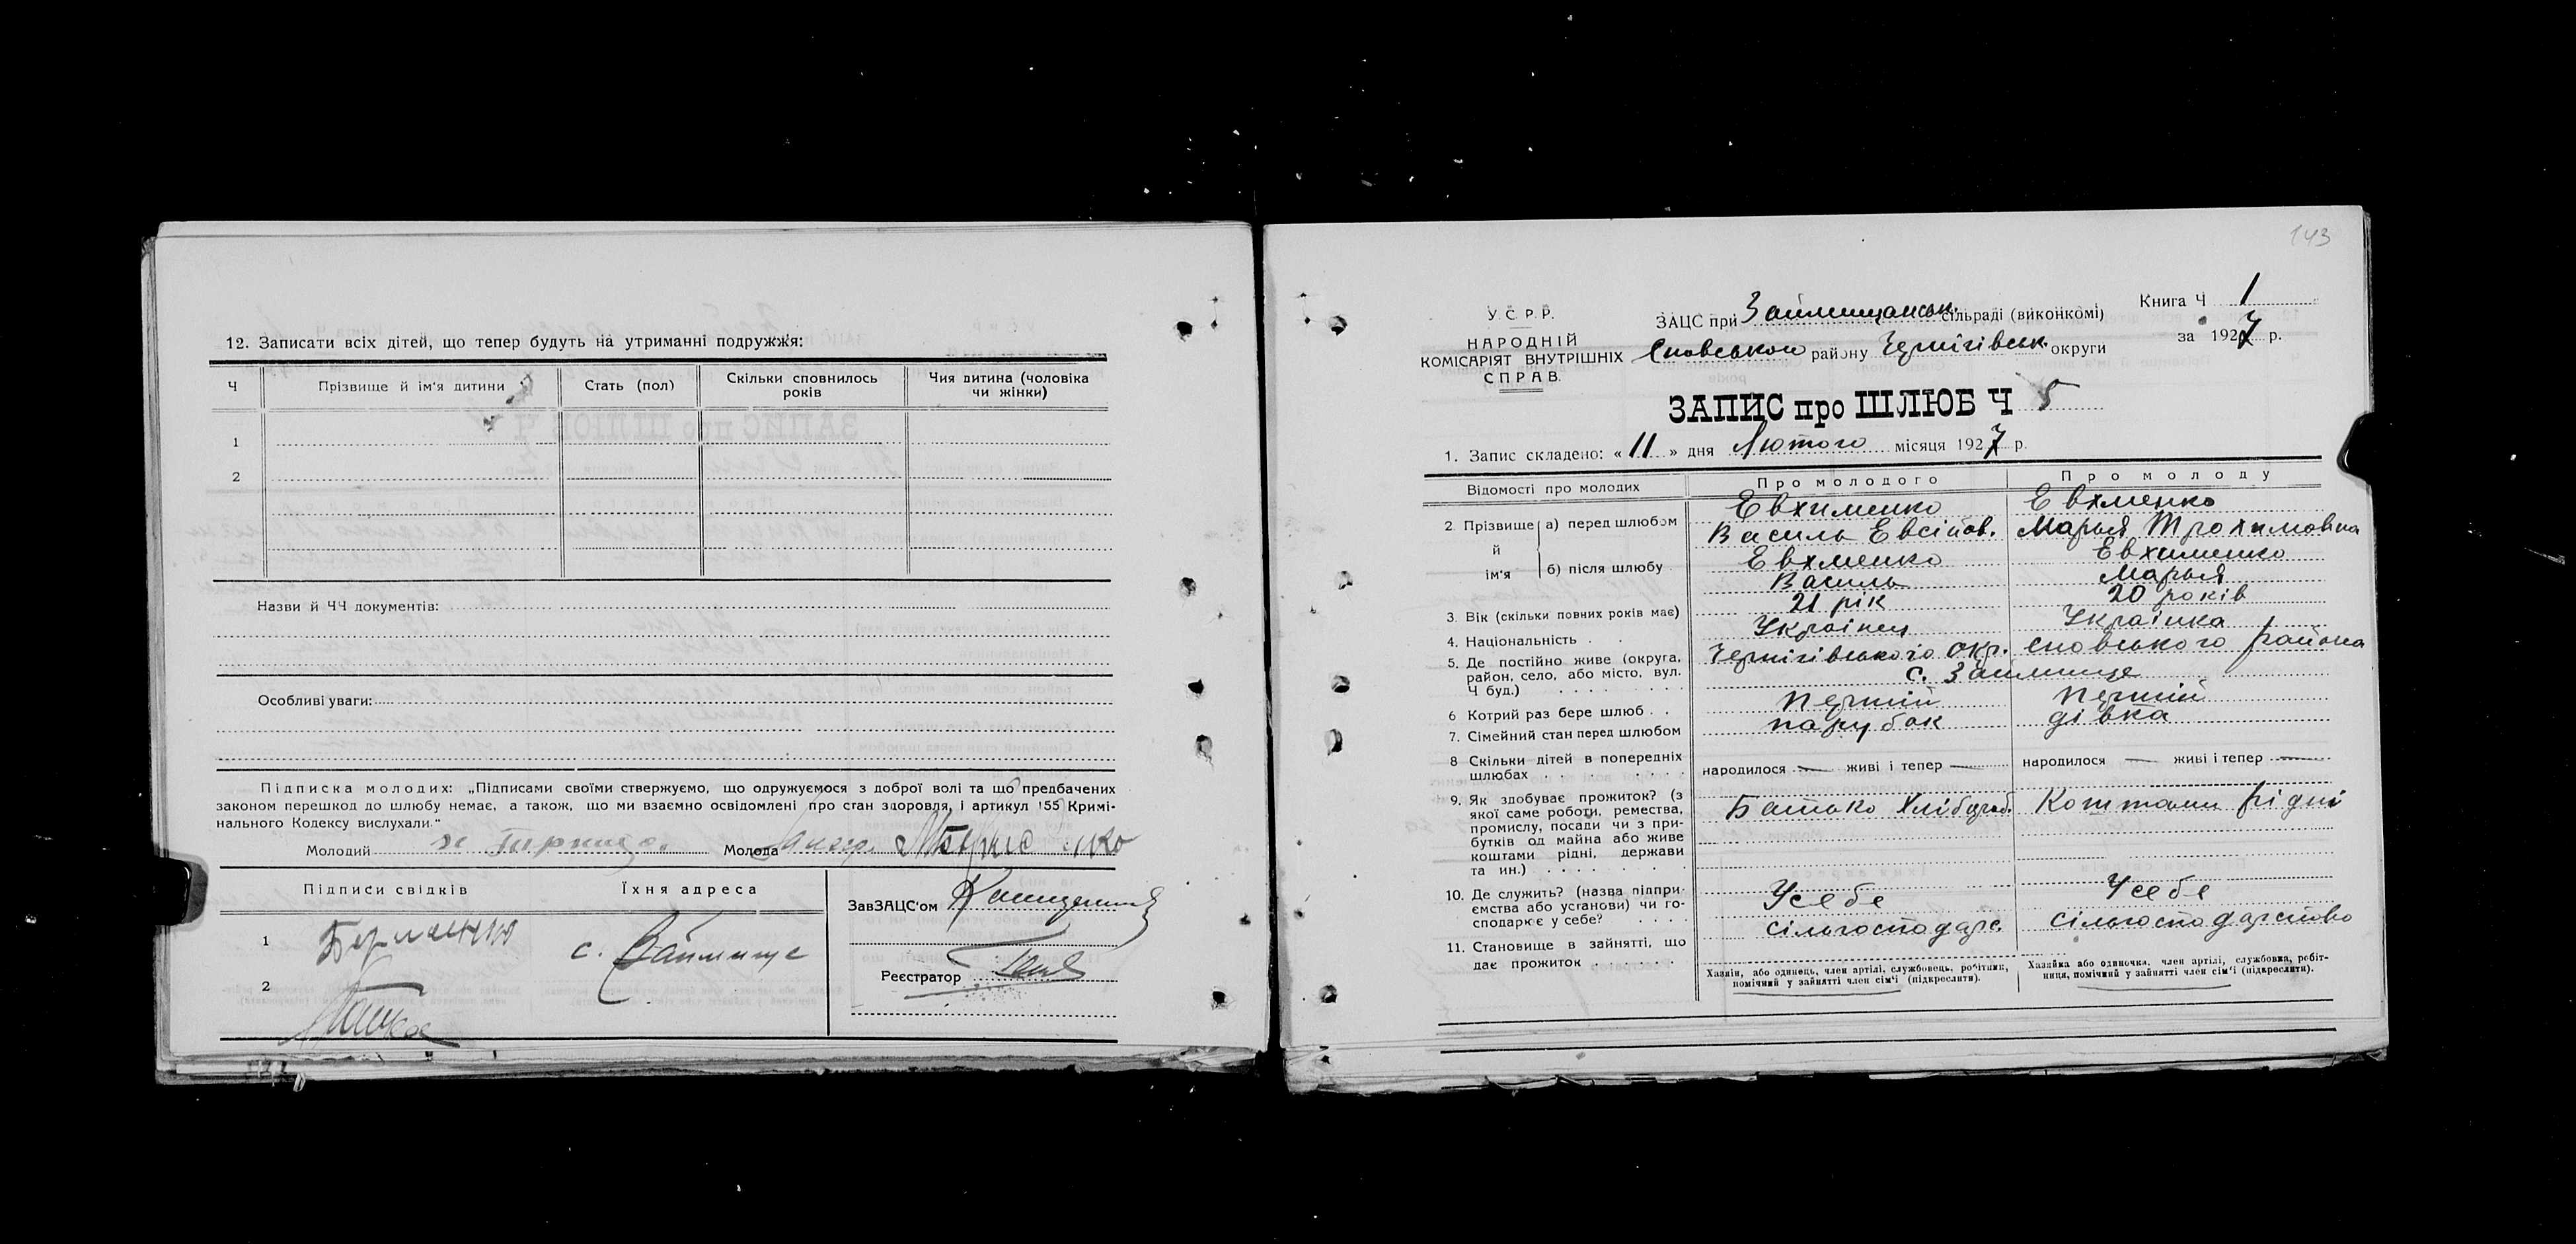 12. Записати всіх дітей, що тепер будуть на утриманні подружжя:
Ч Прізвище й ім'я дитини Стать (пол) Скільки сповнилось років Чия дитина (чоловіка чи жінки)
1
2
Назви й ЧЧ документів:
Особливі уваги:
Підписка молодих: „Підписами своїми ствержуємо, що одружуємося з доброї волі та що предбачених
законом перешкод до шлюбу немає, а також, що ми взаємно освідомлені про стан здоровля, і артикул 155 Кримі-
нального Кодексу вислухали."
Молодий Молода
Підписи свідків Їхня адреса
ЗавЗАЦС'ом
1 с. Займище
2
Реєстратор
143
У.С.Р.Р.
НАРОДНІЙ
КОМІСАРІЯТ ВНУТРІШНІХ
СПРАВ.
ЗАЦС при Займищанськ. сільраді (виконкомі)
Сновського району Чернігівськ. округи
Книга Ч 1
за 1927 р.
ЗАПИС про ШЛЮБ Ч 5
1. Запис складено: « 11 » дня Лютого місяця 1927 р.
Відомості про молодих Про молодого Про молоду
2. Прізвище й ім'я а) перед шлюбом Евхименко Евхменко
Василь Евсійов. Марья Трохимовна
б) після шлюбу Евхменко Евхименко
Василь Марья
3. Вік (скільки повних років має) 21 рік 20 років
4. Національність Українец Українка
5. Де постійно живе (округа, район, село, або місто, вул. Ч буд.) Чернігівського окр. Сновського района
с. Займище
6 Котрий раз бере шлюб Перший Перший
7. Сімейний стан перед шлюбом парубок дівка
8 Скільки дітей в попередніх шлюбах народилося — живі і тепер — народилося — живі і тепер —
9. Як здобуває прожиток? (з якої саме роботи, ремества, промислу, посади чи з прибутків од майна або живе коштами рідні, держави та ин.) Батько Хлібороб. Коштами рідні
10. Де служить? (назва підприємства або установи) чи господаркє у себе? У себе У себе
11. Становище в зайнятті, що дає прожиток сільгосподарс. сільгосподарство
Хазяїн, або одинець, член артілі, службовець, робітник,
помічний у зайнятті член сім'ї (підкреслити).
Хазяйка або одиночка, член артілі, службовка, робіт-
ниця, помічний у зайнятті член сім'ї (підкреслити).